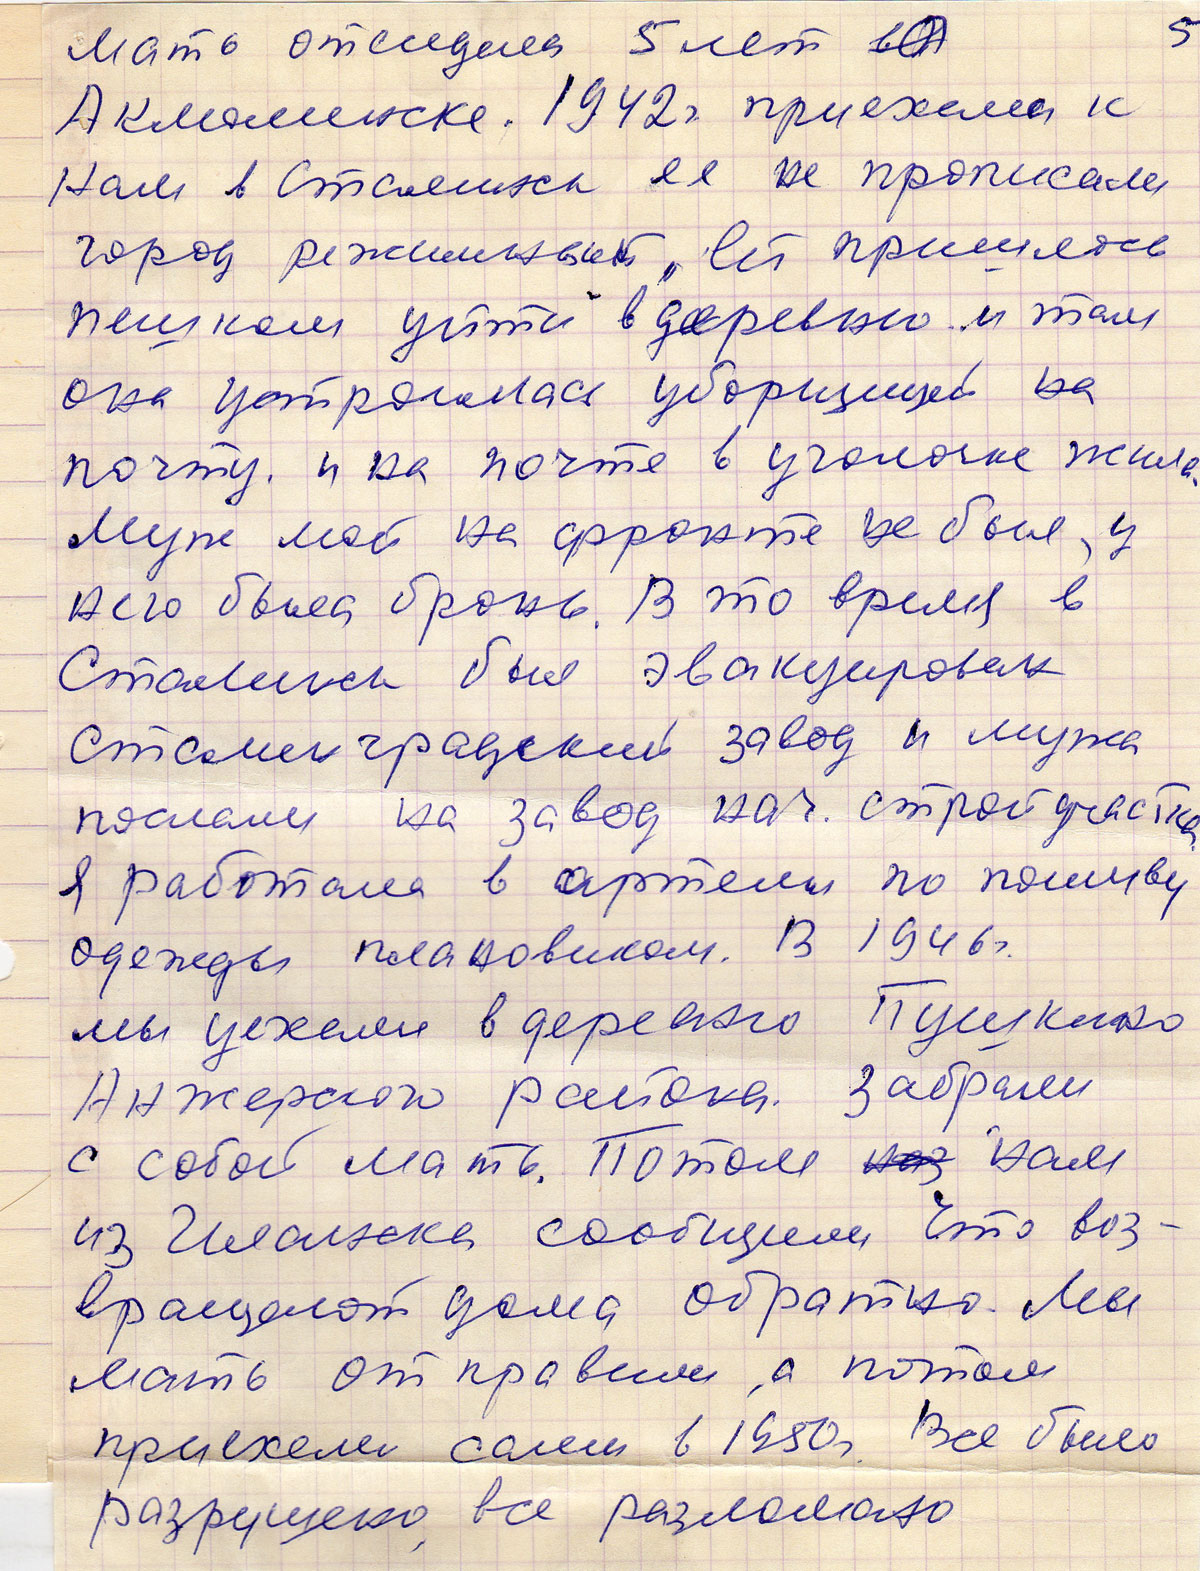 Мать отсидела 5 лет в 5
Акмолинске. 1942г приехала к
нам в Сталинск ее не прописали
город режимный, Ей пришлось
пешком уйти в деревню и там
она устроилась уборщицей на
почту. и на почте в уголочке жила.
Муж мой на фронте не был, у
него была бронь. В это время в
Сталинск был эвакуирован
Сталинградский завод и мужа
послали на завод нач. стройучастка
Я работала в артели по пошиву
одежды плановиком. В 1946г.
мы уехали в деревню Пушкино
Анжерского района. Забрали
с собой мать. Потом нам
из Иланска сообщили что воз-
вращают дома обратно. Мы
мать отправили, а потом
приехали сами в 1950г. Все было
разрушено, все разломано